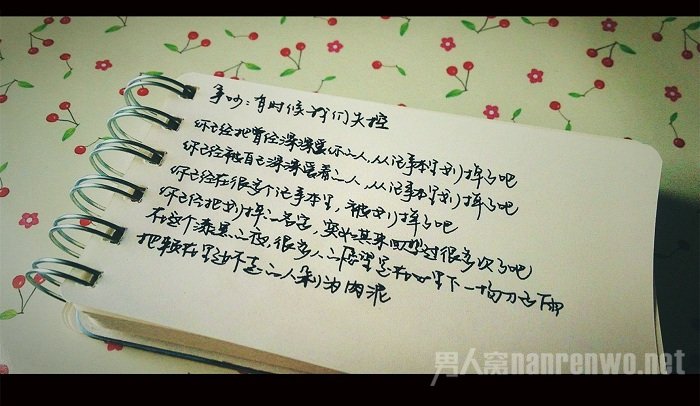 争吵：有时候我们失控
你已经把曾经深深爱你之人，从记事本里划掉了吧
你已经被自己深深爱着之人，从记事本里划掉了吧
你已经在很多个记事本里，被划掉了吧
你已经把划掉之名字，突如其来回想过很多次了吧
在这个漆黑之夜，很多人之愿望是在心里下一场刀子雨
把躺在里边不走之人剁为肉泥
男人窝nanrenwo.net